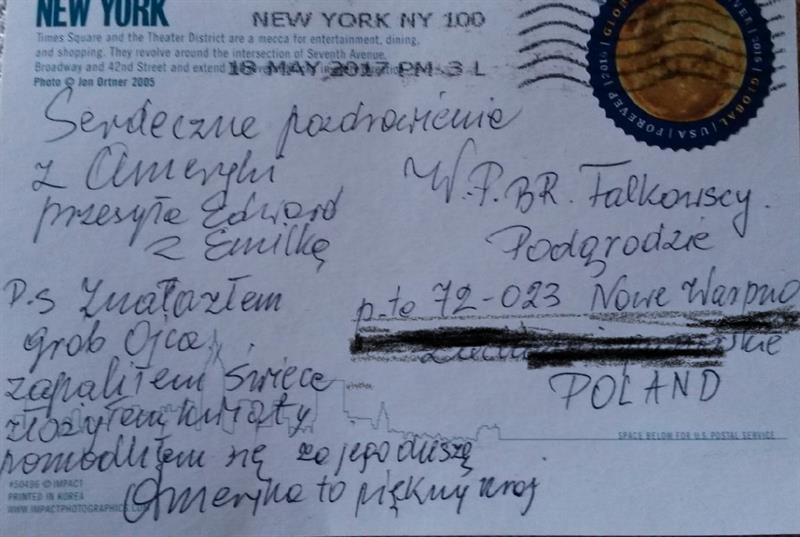 NEW YORK
Times Square and the Theater District are a mecca for entertainment, dining,
and shopping. They revolve around the intersection of Seventh Avenue,
Broadway and 42nd Street and extend
Photo © Jon Ortner 2005
NEW YORK NY 100
18 MAY 2017 PM 3 L
GLOBAL | USA | FOREVER | 2016
Serdeczne pozdrowienie
z Ameryki
przesyła Edward
z Emilką
P.S Znalazłem
grób Ojca
zapaliłem świece
złożyłem kwiaty
pomodliłem się za jego duszę
Ameryka to piękny kraj
W.P. BR. Falkowscy.
Podgrodzie
p-ta 72-023 Nowe Warpno
POLAND
SPACE BELOW FOR U.S. POSTAL SERVICE
#50496 © IMPACT
PRINTED IN KOREA
WWW.IMPACTPHOTOGRAPHICS.COM